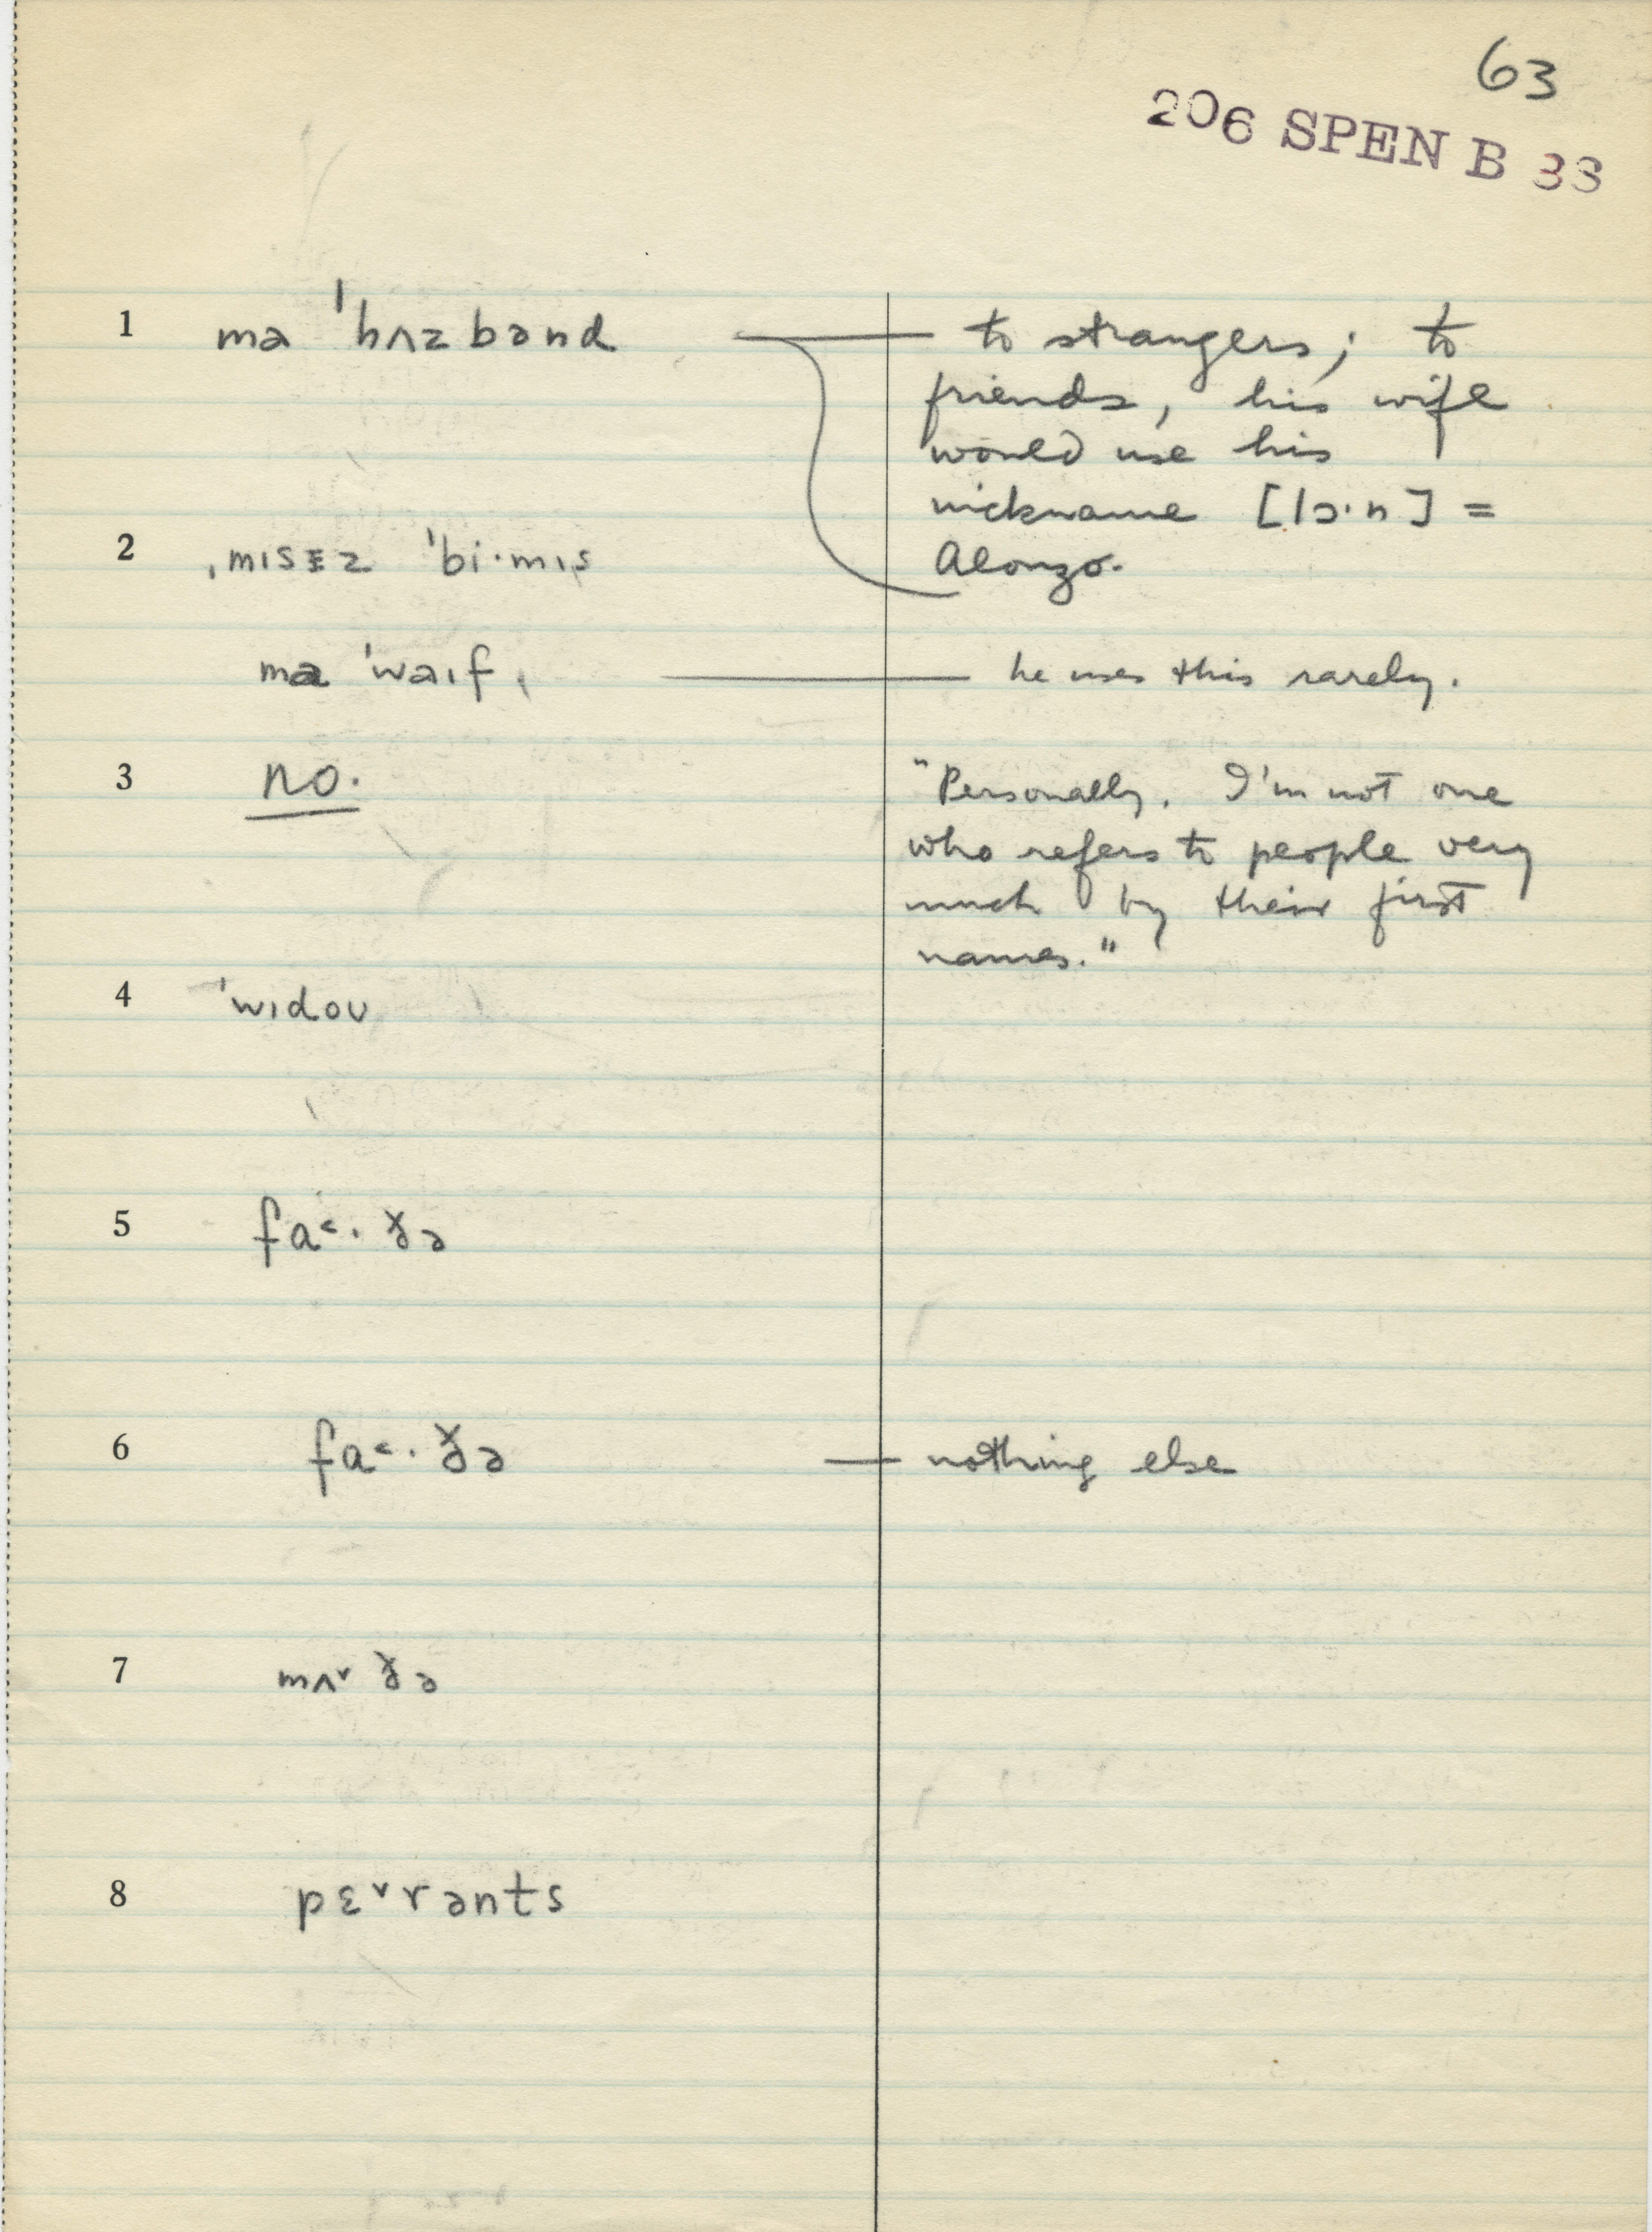 63
206 SPEN B 38
1 ma ˈhʌzbənd — to strangers; to
friends, his wife
would use his
nickname [lɔ·n] =
Alonzo.
2 ˌmɪsɛz ˈbi·mɪs
ma ˈwaɪf, — he uses this rarely.
3 no.
"Personally, I'm not one
who refers to people very
much by their first
names."
4 ˈwɪdoʊ
5 fa˂·ɤ̵ə
6 fa˂·ɤ̵ə — nothing else
7 mʌ˅ɤ̵ə
8 pɛ˅rənts